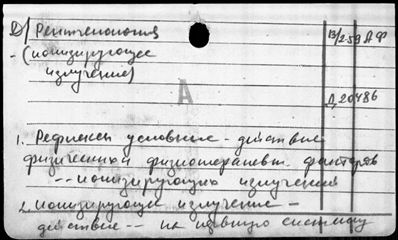 D/ Рентгенология
- (ионизирующее
излучение)
В/259 АФ
Д 20486
А
1. Рефлексы условные - действие
физических физиотерапевт. факторов
-- ионизирующие излучения
2. ионизирующее излучение -
действие -- на нервную систему